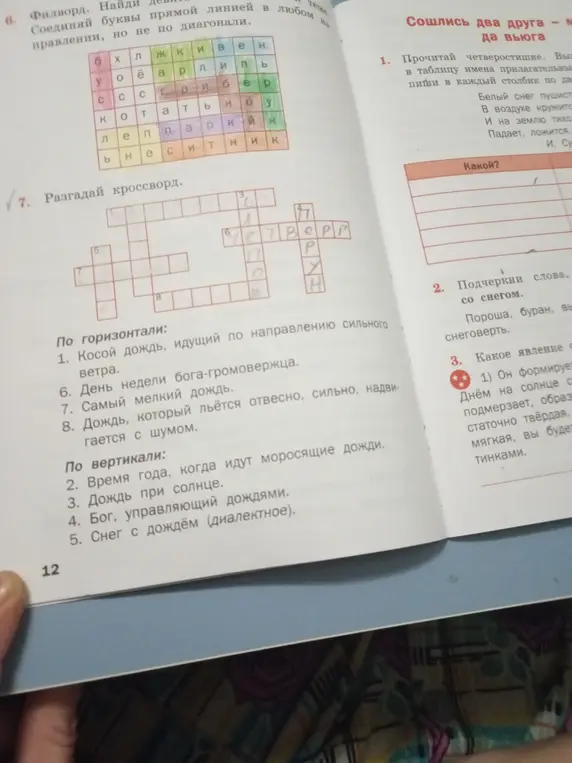 6. Филворд. Найди
Соединяй буквы прямой линией в любом на
правлении, но не по диагонали.
б х л ж к и в е н
у о ё а р л и п ь
с с с г р и б е р
к о т а т ь н о у
л е п п а р к и к
ь н е с и т н и к
7. Разгадай кроссворд.
По горизонтали:
1. Косой дождь, идущий по направлению сильного
ветра.
6. День недели бога-громовержца.
7. Самый мелкий дождь.
8. Дождь, который льётся отвесно, сильно, надви-
гается с шумом.
По вертикали:
2. Время года, когда идут моросящие дожди.
3. Дождь при солнце.
4. Бог, управляющий дождями.
5. Снег с дождём (диалектное).
12
Сошлись два друга –
да вьюга
1. Прочитай четверостишие.
в таблицу имена прилагательны
пиши в каждый столбик по дв
Белый снег пушист
В воздухе кружитс
И на землю тихо
Падает, ложится.
И. Су
Какой?
2. Подчеркни слова,
со снегом.
Пороша, буран, вь
снеговерть.
3. Какое явление
1) Он формируе
Днём на солнце с
подмерзает, образ
статочно твёрдая.
мягкая, вы буде
тинками.